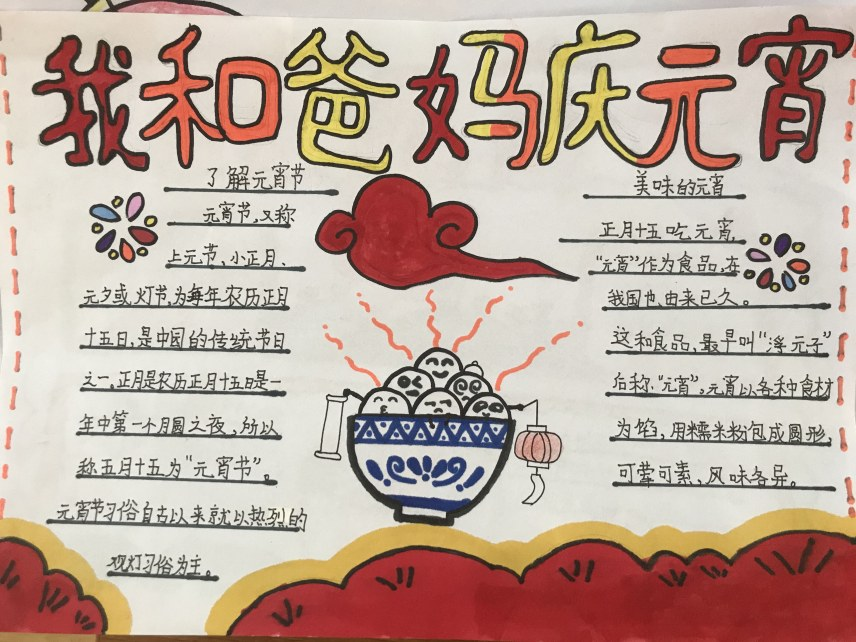 我和爸妈庆元宵
了解元宵节
元宵节,又称
上元节、小正月、
元夕或灯节,为每年农历正月
十五日,是中国的传统节日
之一,正月是农历正月十五日是一
年中第一个月圆之夜,所以
称五月十五为“元宵节”。
元宵节习俗自古以来就以热烈的
观灯习俗为主。
美味的元宵
正月十五吃元宵,
“元宵”作为食品,在
我国也由来已久。
这和食品,最早叫“浮元子”
后称“元宵”。元宵以各种食材
为馅,用糯米粉包成圆形,
可荤可素、风味各异。